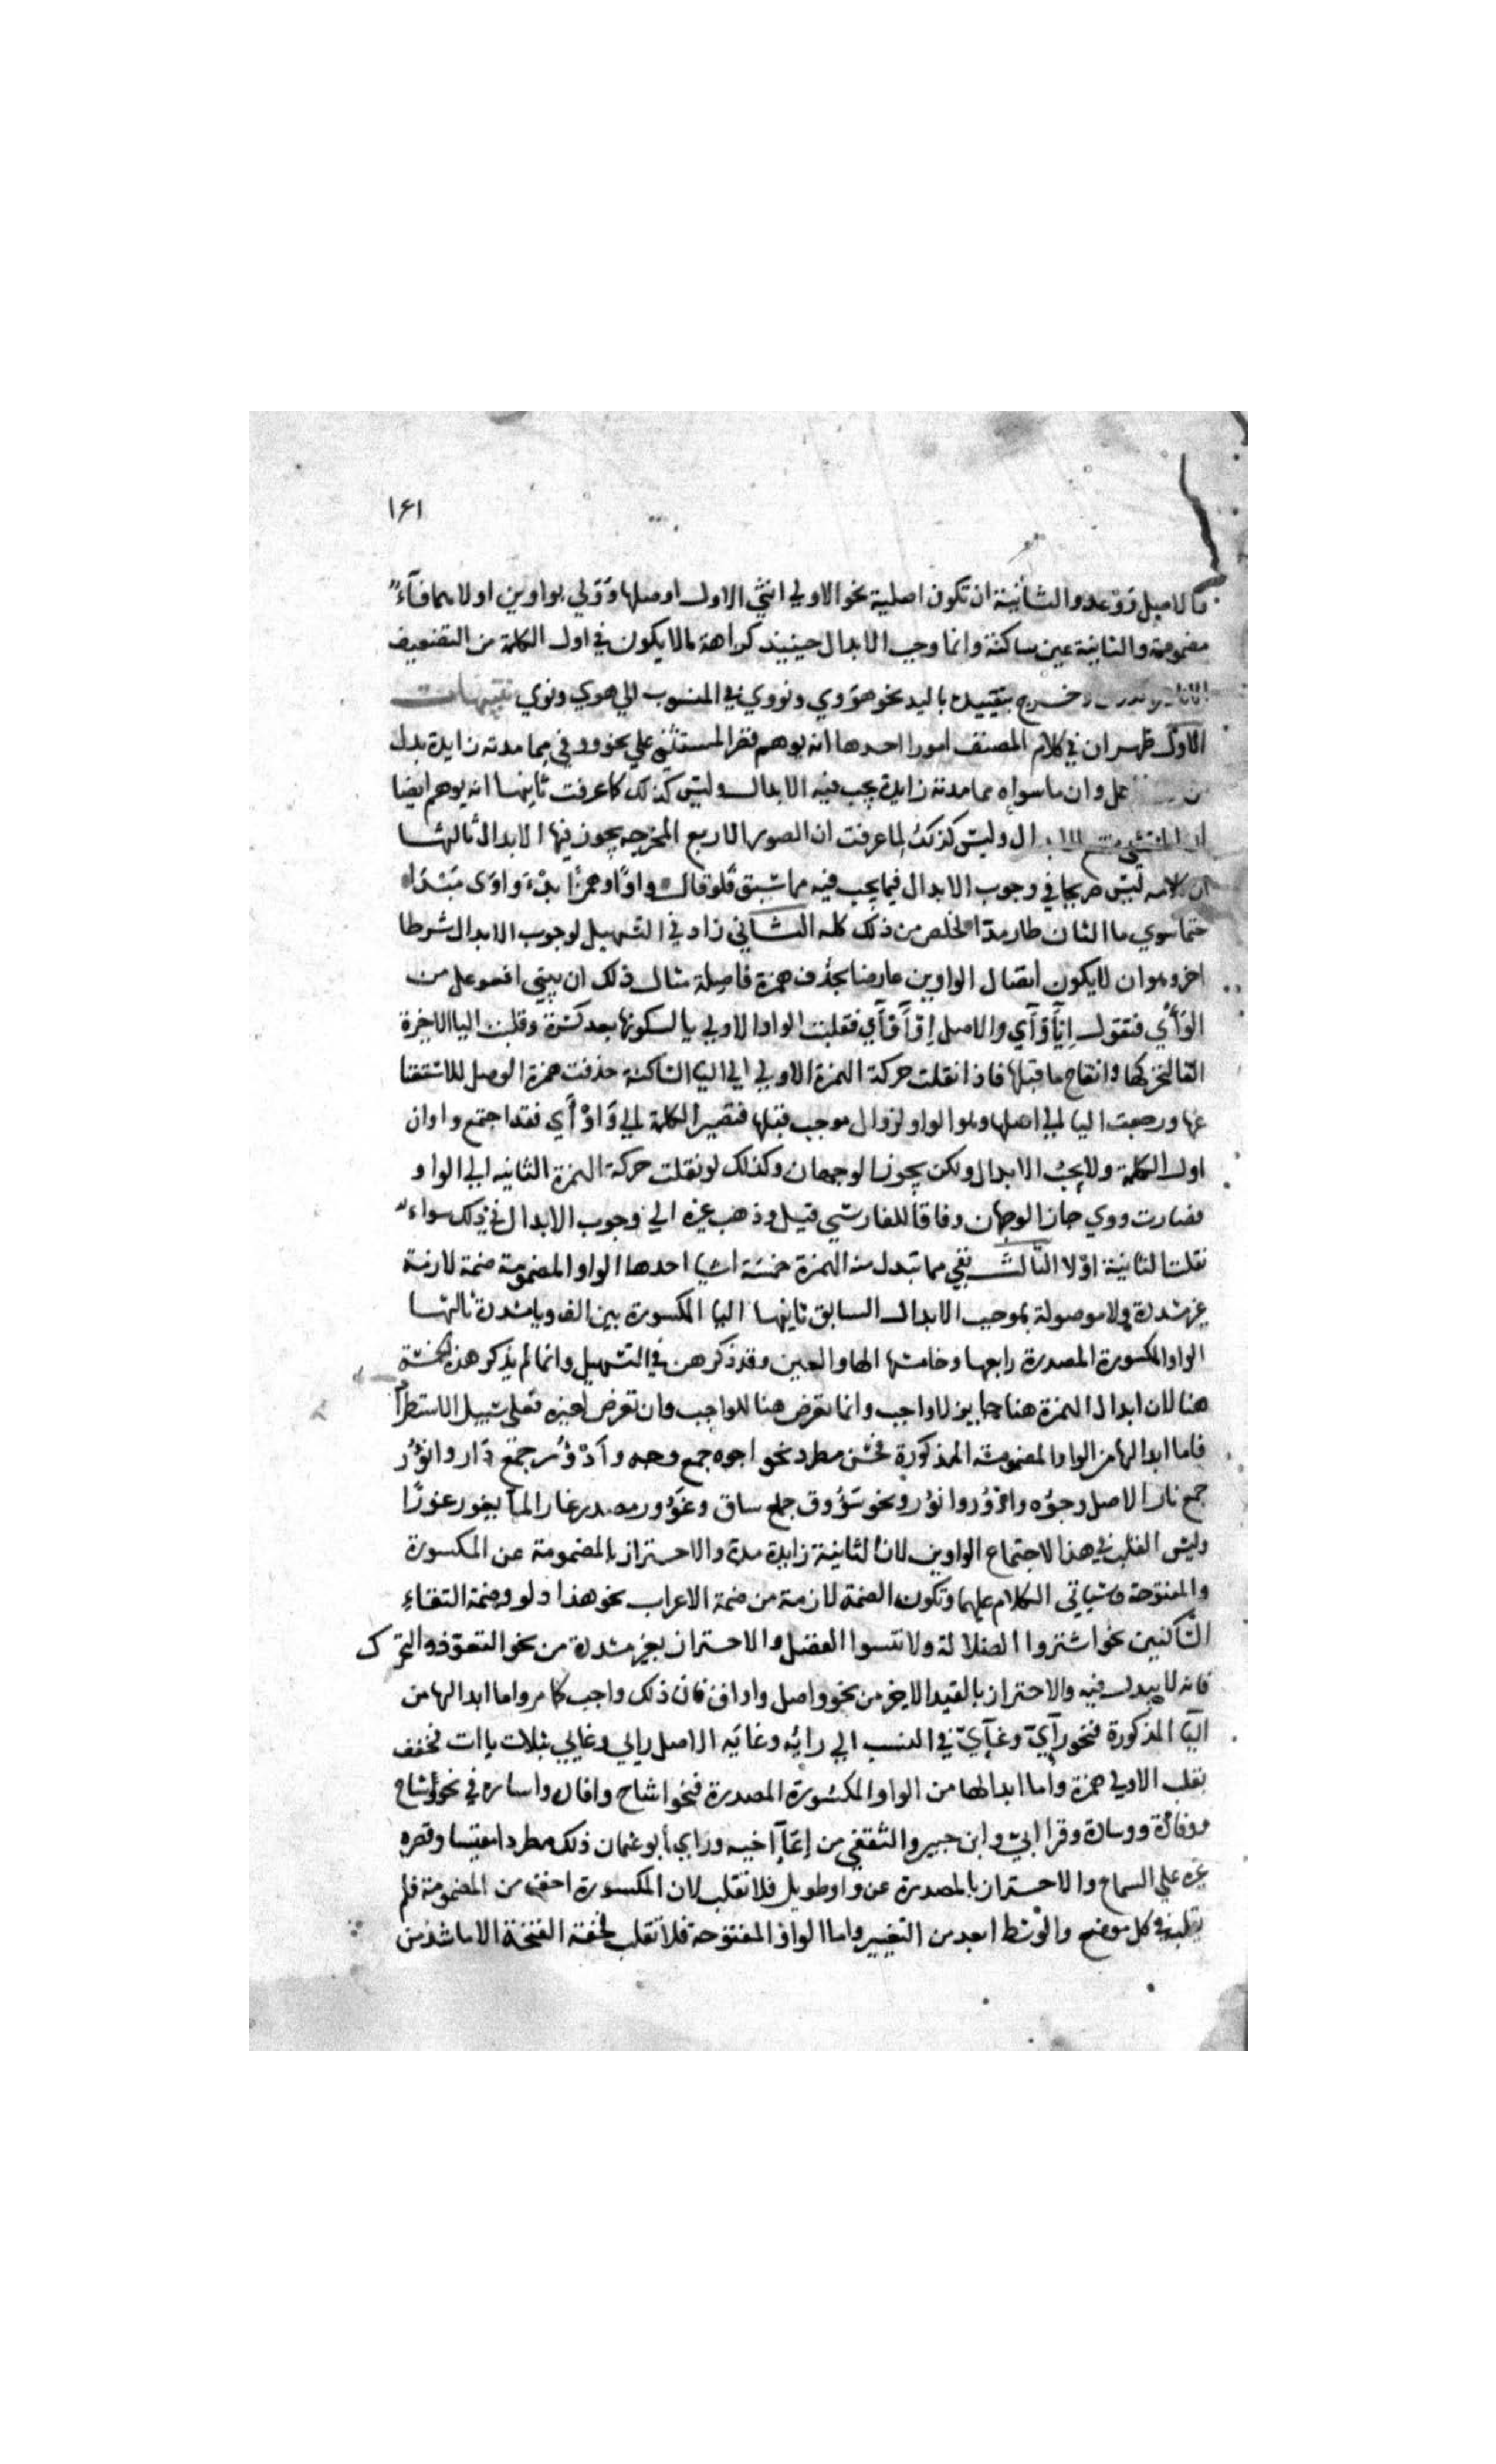 ١٤١
فالاصل ووعد والثانية ان تكون اصلية نحو الاولي انثي الاول اصلها وولي بواوين اولاهما فآء
مضمومة والثانية عين ساكنة وانما وجب الابدال حينيذ كراهة لما لا يكون في اول الكلمة من التضعيف
وخرج بتقييده باليد نحو هووي ونووي في المنسوب الي هوي ونوي تنبيهات
الاول ظهر ان في كلام المصنف امورا احدها انه يوهم قصر المستثني علي نحو ووفي مما مدته زايدة بدل
من فاعل وان ما سواه مما مدته زايدة يجب فيه الابدال وليس كذلك كما عرفت ثانيها انه يوهم ايضا
ال وليس كذلك لما عرفت ان الصور الاربع المخرجه يجوز فيها الابدال ثالثها
ان كلامه ليس صريحا في وجوب الابدال فيما يجب فيه مما سبق فلو قال واوا وهمزا بدء واوي مبتدا
حتما سوي ما الثان طار مدا لخلص من ذلك كله الثاني زاد في التسهيل لوجوب الابدال شرطا
اخر وهو ان لا يكون اتصال الواوين عارضا بحذف همزة فاصلة مثال ذلك ان يبني افعوعل من
الوأي فتقول اِيأَوْأَي والاصل اِوْأَوْأَي فقلبت الواو الاولي يا لسكونها بعد كسرة وقلبت اليا الاخيرة
الفا لتحركها وانفتاح ما قبلها فاذا نقلت حركة الهمزة الاولي الي اليا الساكنة حذفت همزة الوصل للاستغنا
عنها ورجعت اليا الي اصلها وهو الواو لزوال موجب قلبها فتصير الكلمة الي وَاوْأَي فقد اجتمع واوان
اول الكلمة ولا يجب الابدال ولكن يجوز الوجهان وكذلك لو نقلت حركة الهمزة الثانيه الي الواو
فصارت ووي جاز الوجهان وفاقا للفارسي قيل وذهب غيره الي وجوب الابدال في ذلك سواء
نقلت الثانية اولا الثالث بقي مما تبدل منه الهمزة خمسة اشيا احدها الواو المضمومة ضمة لازمة
غير مشددة ولا موصولة بموجب الابدال السابق ثانيها اليا المكسورة بين الف ويا مشددة ثالثها
الواو المكسورة المصدرة رابعها وخامسها الها والعين وقد ذكرهن في التسهيل وانما لم يذكر هذه الخمسة
هنا لان ابدال الهمزة هنا جايز لا واجب وانما تعرض هنا للواجب وان تعرض لغيره فعلي سبيل الاستطراد
فاما ابدالها من الواو المضمومة المذكورة فحسن مطرد نحو اجوه جمع وجه وأدْؤُر جمع دار وانؤر
جمع نار الاصل وجوه وادوُر وانوُر ونحو سؤوق جمع ساق وغوور مصدر غار المآ يغور غورًا
وليس القلب في هذا لاجتماع الواوين لان الثانية زايدة مدة والاحتراز بالمضمومة عن المكسورة
والمفتوحة وسياتي الكلام عليها وتكون الضمة لازمة من ضمة الاعراب نحو هذا دلو وضمة التقاء
الساكنين نحو اشتروا الضلالة ولا تنسوا الفضل والاحتراز بغير مشددة من نحو التعوذ والتحرك
فانه لا يبدل فيه والاحتراز بالقيد الاخير من نحو واصل واواق فان ذلك واجب كما مر واما ابدالها من
اليا المذكورة فنحو رآئيّ وغآئيّ في النسب الي رايه وغايه الاصل رايي وغايي بثلاث ياات فخفف
بقلب الاولي همزة واما ابدالها من الواو المكسورة المصدرة فنحو اشاح وافادة واسادة في نحو وشاح
ووفادة ووسادة وقرا ابي وابن جبير والثقفي من إعآء اخيه وراي ابو عثمان ذلك مطردا مقيسا وقصره
غيره علي السماع والاحتراز بالمصدرة عن واو طويل فلا تقلب لان المكسورة اخف من المضمومة فلم
تقلب في كل موضع والوسط ابعد من التغيير واما الواو المفتوحة فلا تقلب لخفة الفتحة الا ما شذ من